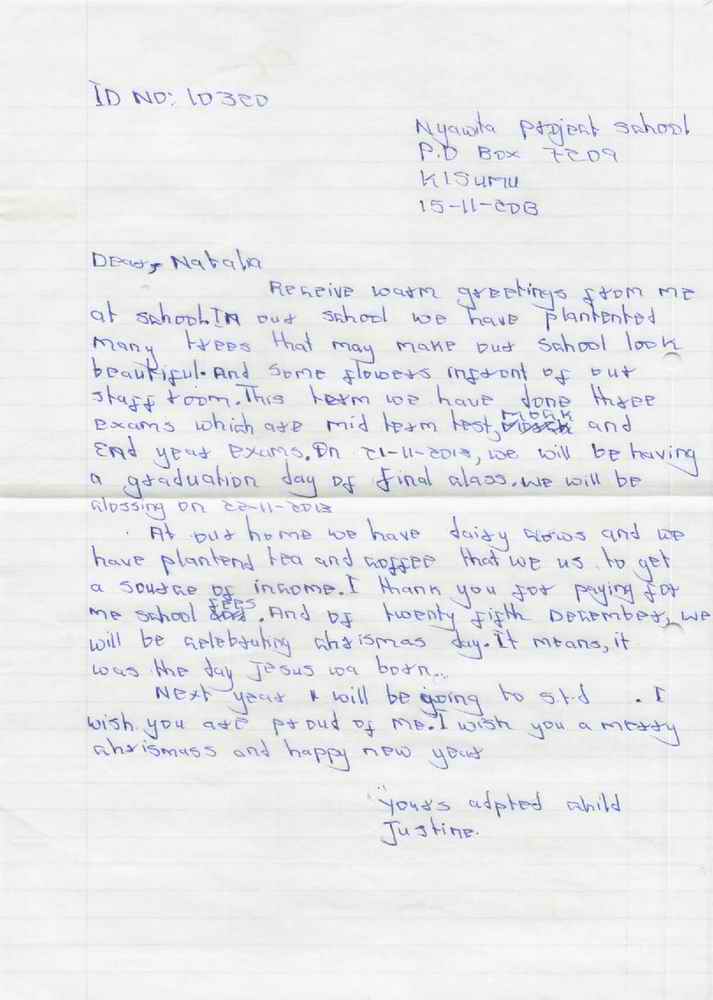 ID NO: 10320
Nyawita project school
P.O BOX 7209
KISUMU
15-11-2013
Dear, Natalia
Receive warm greetings from me
at school.In our school we have plantented
many trees that may make our school look
beautiful.And some flowers infront of our
staff room.This term we have done three
exams which are mid term test, mock and
end year exams.On 21-11-2013, we will be having
a graduation day of final class.we will be
clossing on 22-11-2013
At our home we have dairy cows and we
have plantend tea and coffee that we us to get
a sourse of income.I thank you for paying for
me school fees.And of twenty fifth December, we
will be celebrating chrismas day.It means, it
was the day Jesus wa born..
Next year I will be going to s.t.d . I
wish you are proud of me.I wish you a merry
chrismass and happy new year
Yours adpted child
Justine.